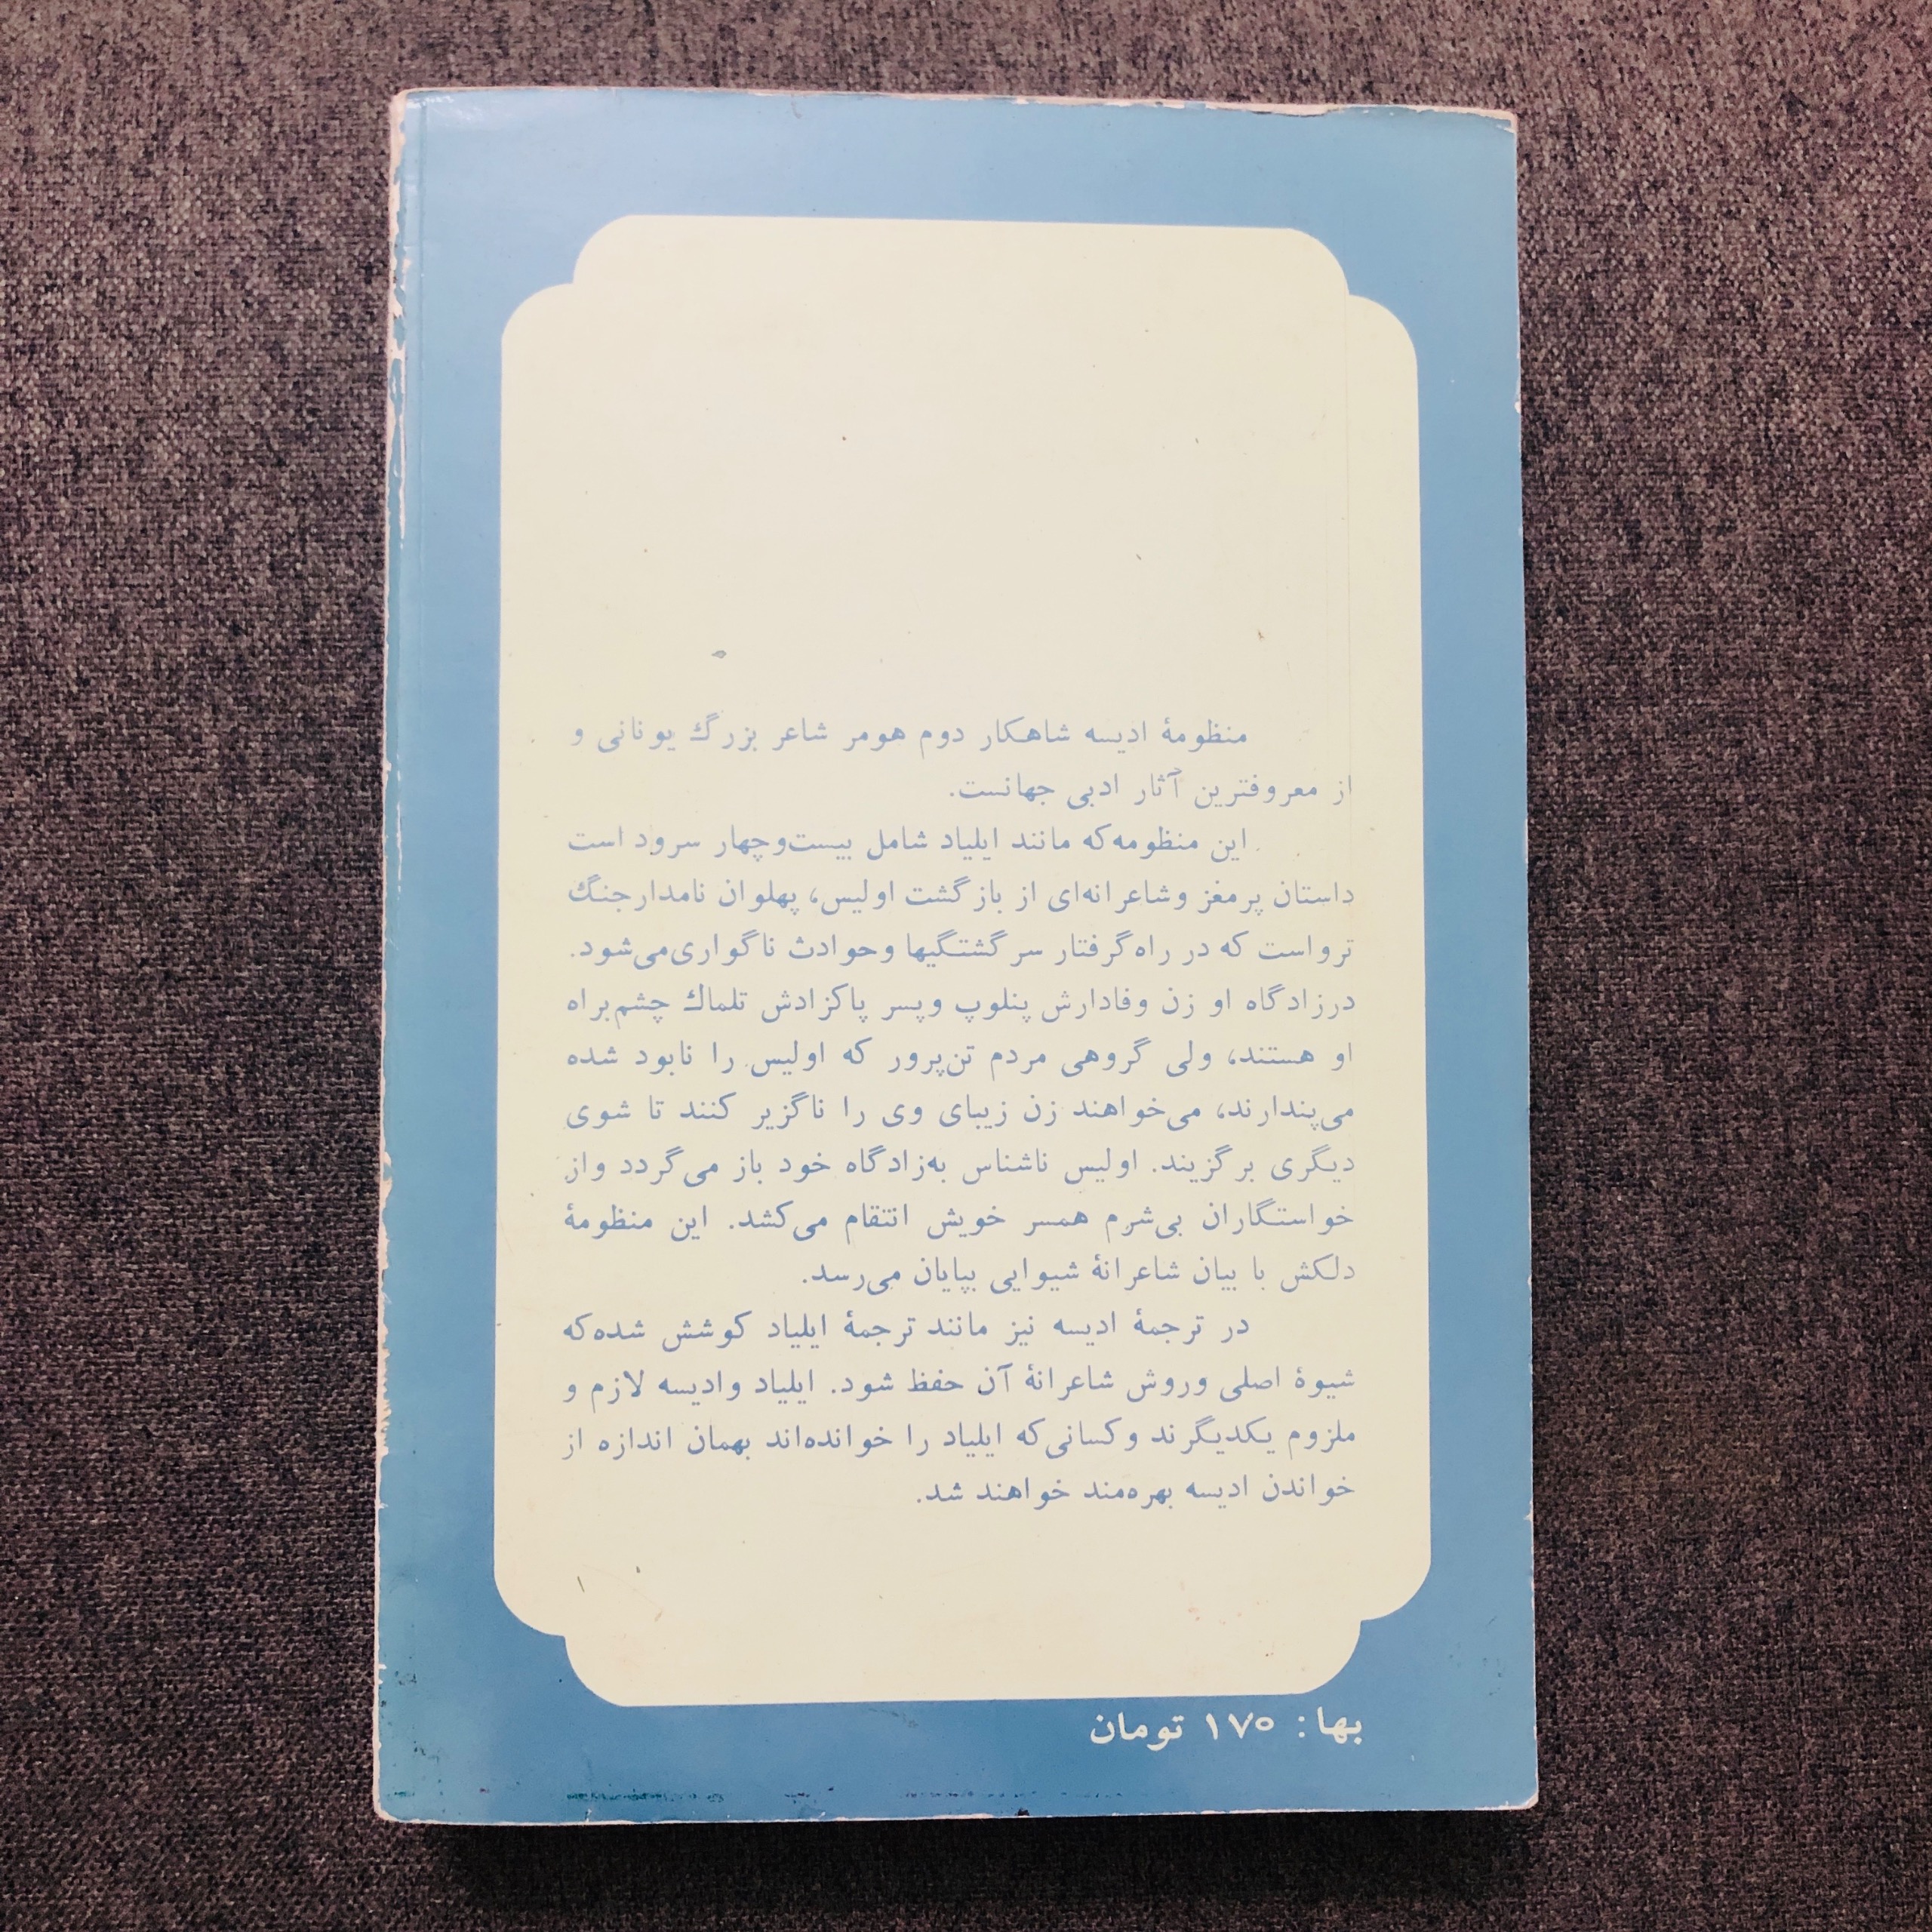 منظومهٔ ادیسه شاهکار دوم هومر شاعر بزرگ یونانی و
از معروفترین آثار ادبی جهانست.
این منظومه که مانند ایلیاد شامل بیست‌وچهار سرود است
داستان پرمغز و شاعرانه‌ای از بازگشت اولیس، پهلوان نامدار جنگ
ترواست که در راه گرفتار سرگشتگیها و حوادث ناگواری می‌شود.
در زادگاه او زن وفادارش پنلوپ و پسر پاکزادش تلماك چشم براه
او هستند، ولی گروهی مردم تن‌پرور که اولیس را نابود شده
می‌پندارند، می‌خواهند زن زیبای وی را ناگزیر کنند تا شوی
دیگری برگزیند. اولیس ناشناس به‌زادگاه خود باز می‌گردد و از
خواستگاران بی‌شرم همسر خویش انتقام می‌کشد. این منظومهٔ
دلکش با بیان شاعرانهٔ شیوایی بپایان می‌رسد.
در ترجمهٔ ادیسه نیز مانند ترجمهٔ ایلیاد کوشش شده که
شیوهٔ اصلی و روش شاعرانهٔ آن حفظ شود. ایلیاد و ادیسه لازم و
ملزوم یکدیگرند و کسانی که ایلیاد را خوانده‌اند بهمان اندازه از
خواندن ادیسه بهره‌مند خواهند شد.
بها: ۱۷۰ تومان